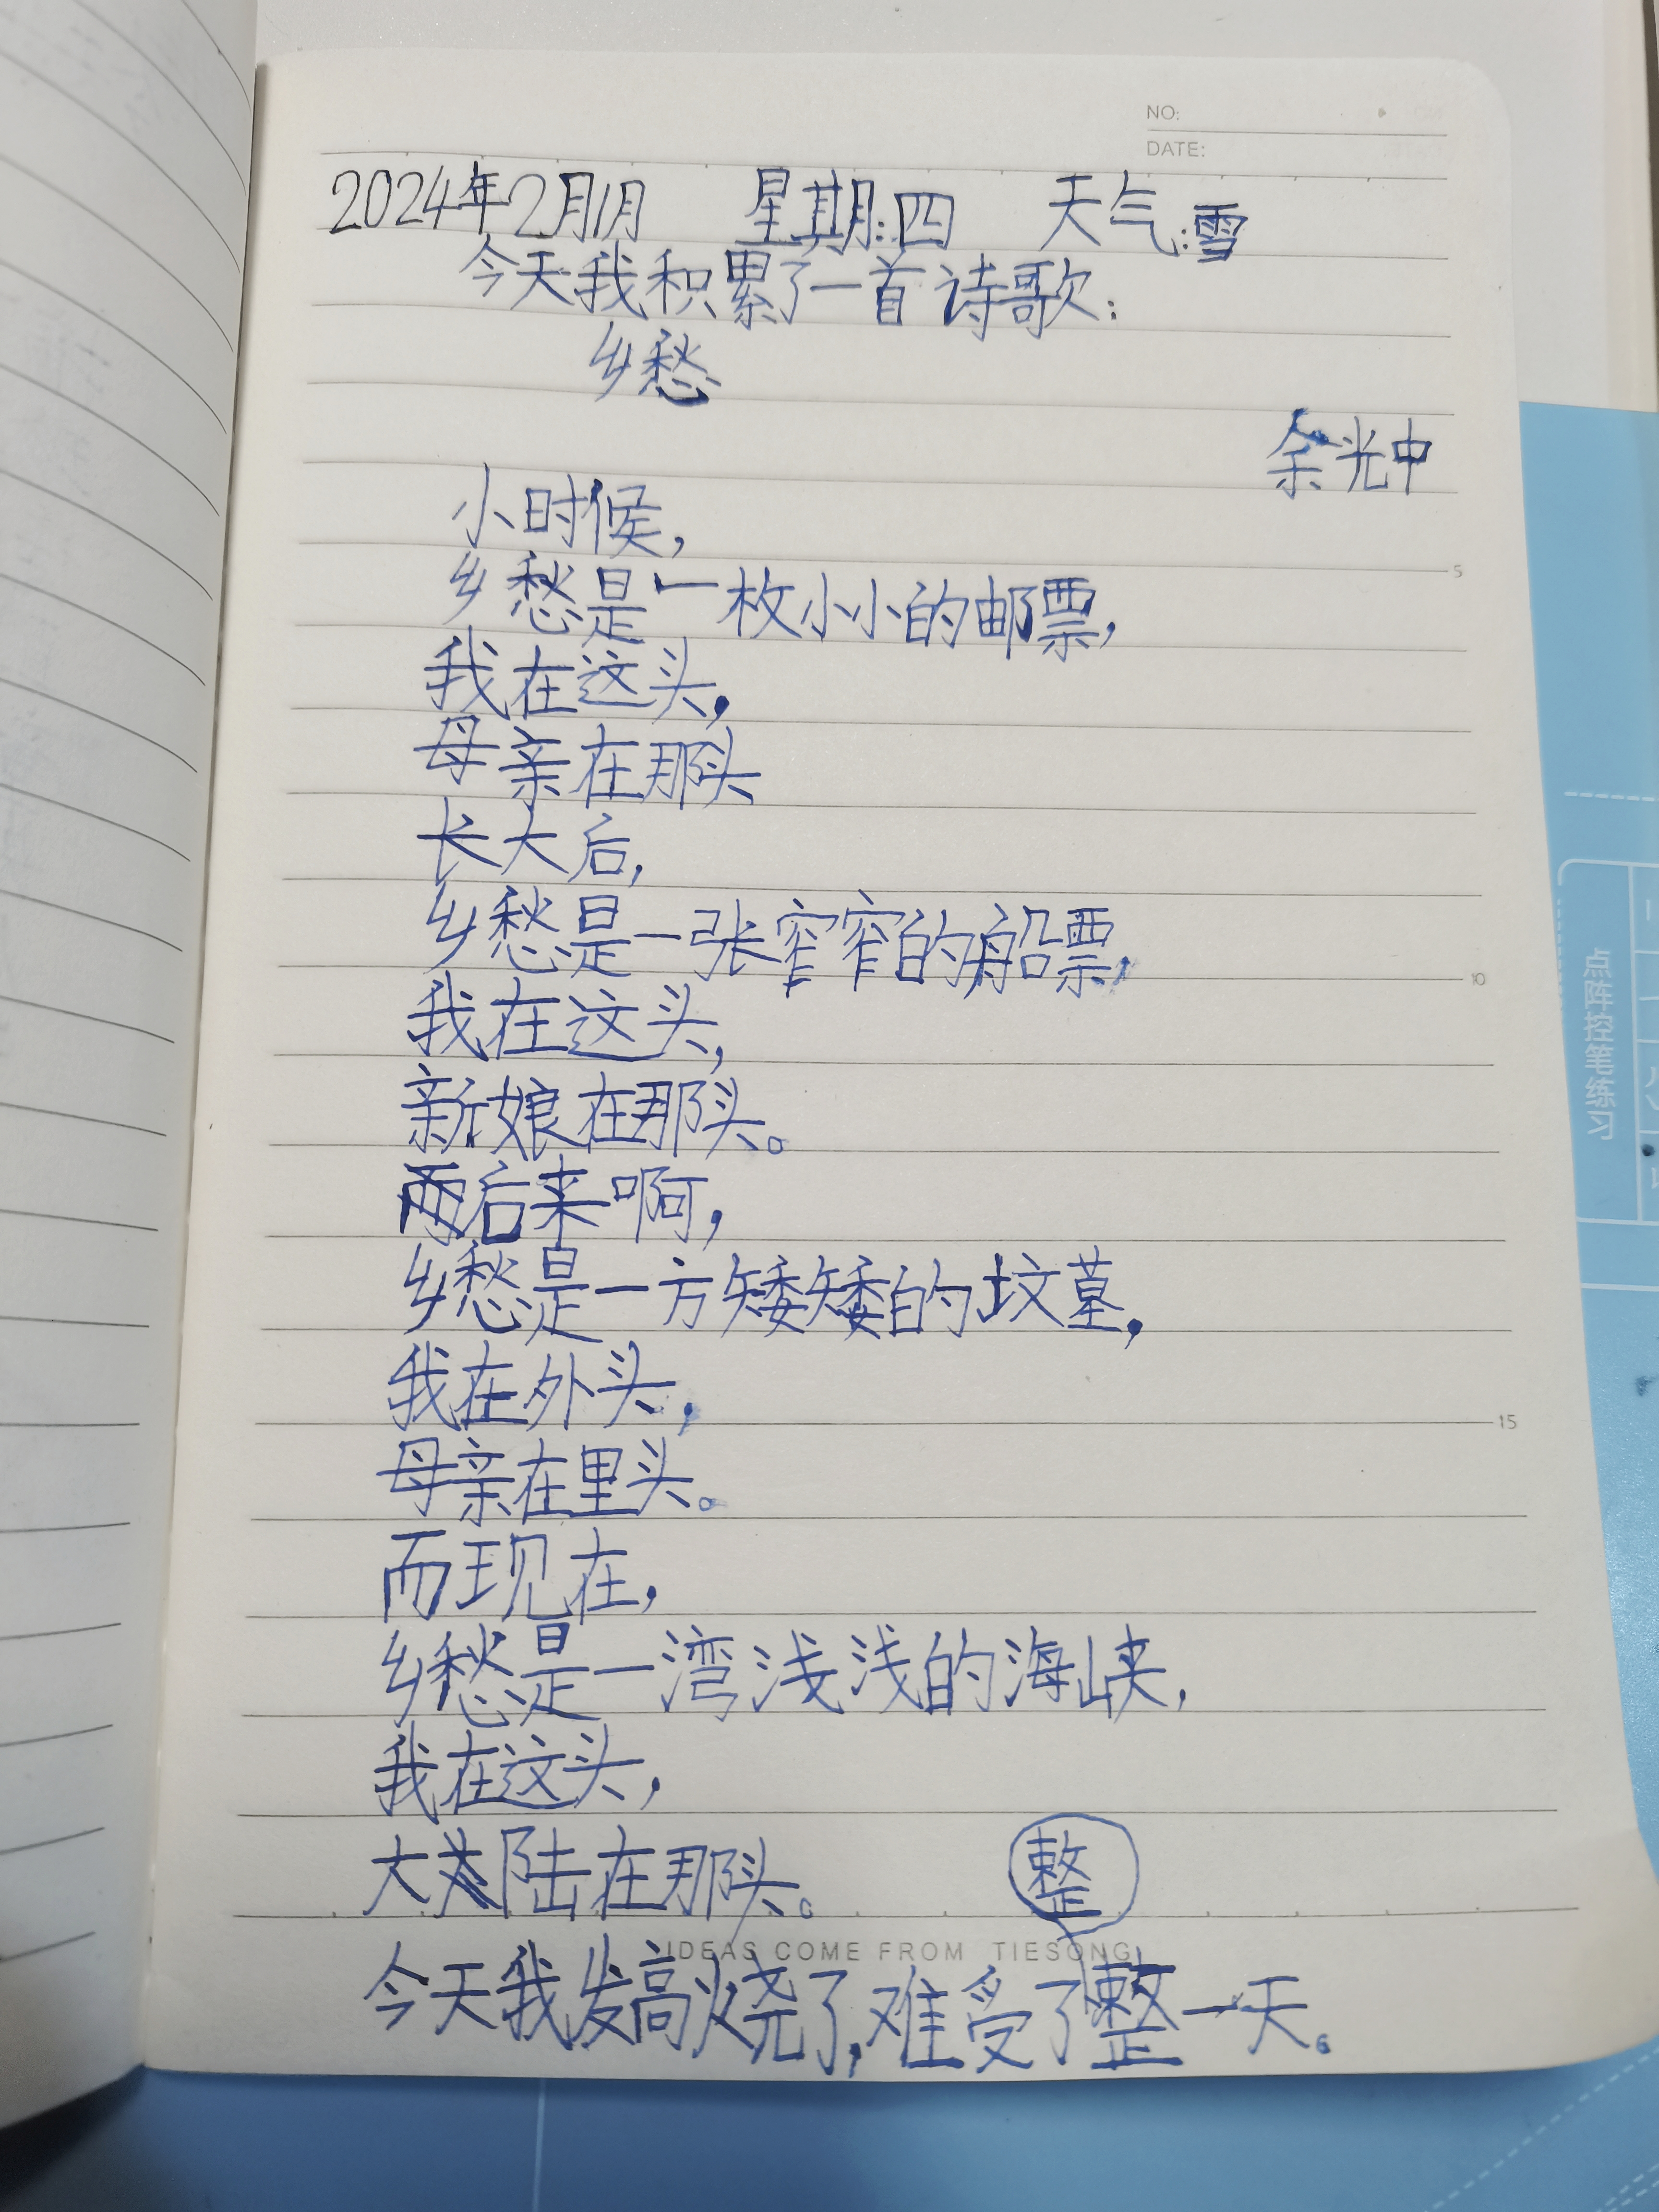 NO:
DATE:
2024年2月1月 星期:四 天气:雪
今天我积累了一首诗歌:
乡愁
余光中
小时候,
乡愁是一枚小小的邮票,
我在这头,
母亲在那头
长大后,
乡愁是一张窄窄的船票,
我在这头,
新娘在那头。
后来啊,
乡愁是一方矮矮的坟墓,
我在外头,
母亲在里头。
而现在,
乡愁是一湾浅浅的海峡,
我在这头,
大陆在那头。
整
IDEAS COME FROM TIESONG
今天我发高烧了,难受了整一天。
5
10
15
点阵控笔练习